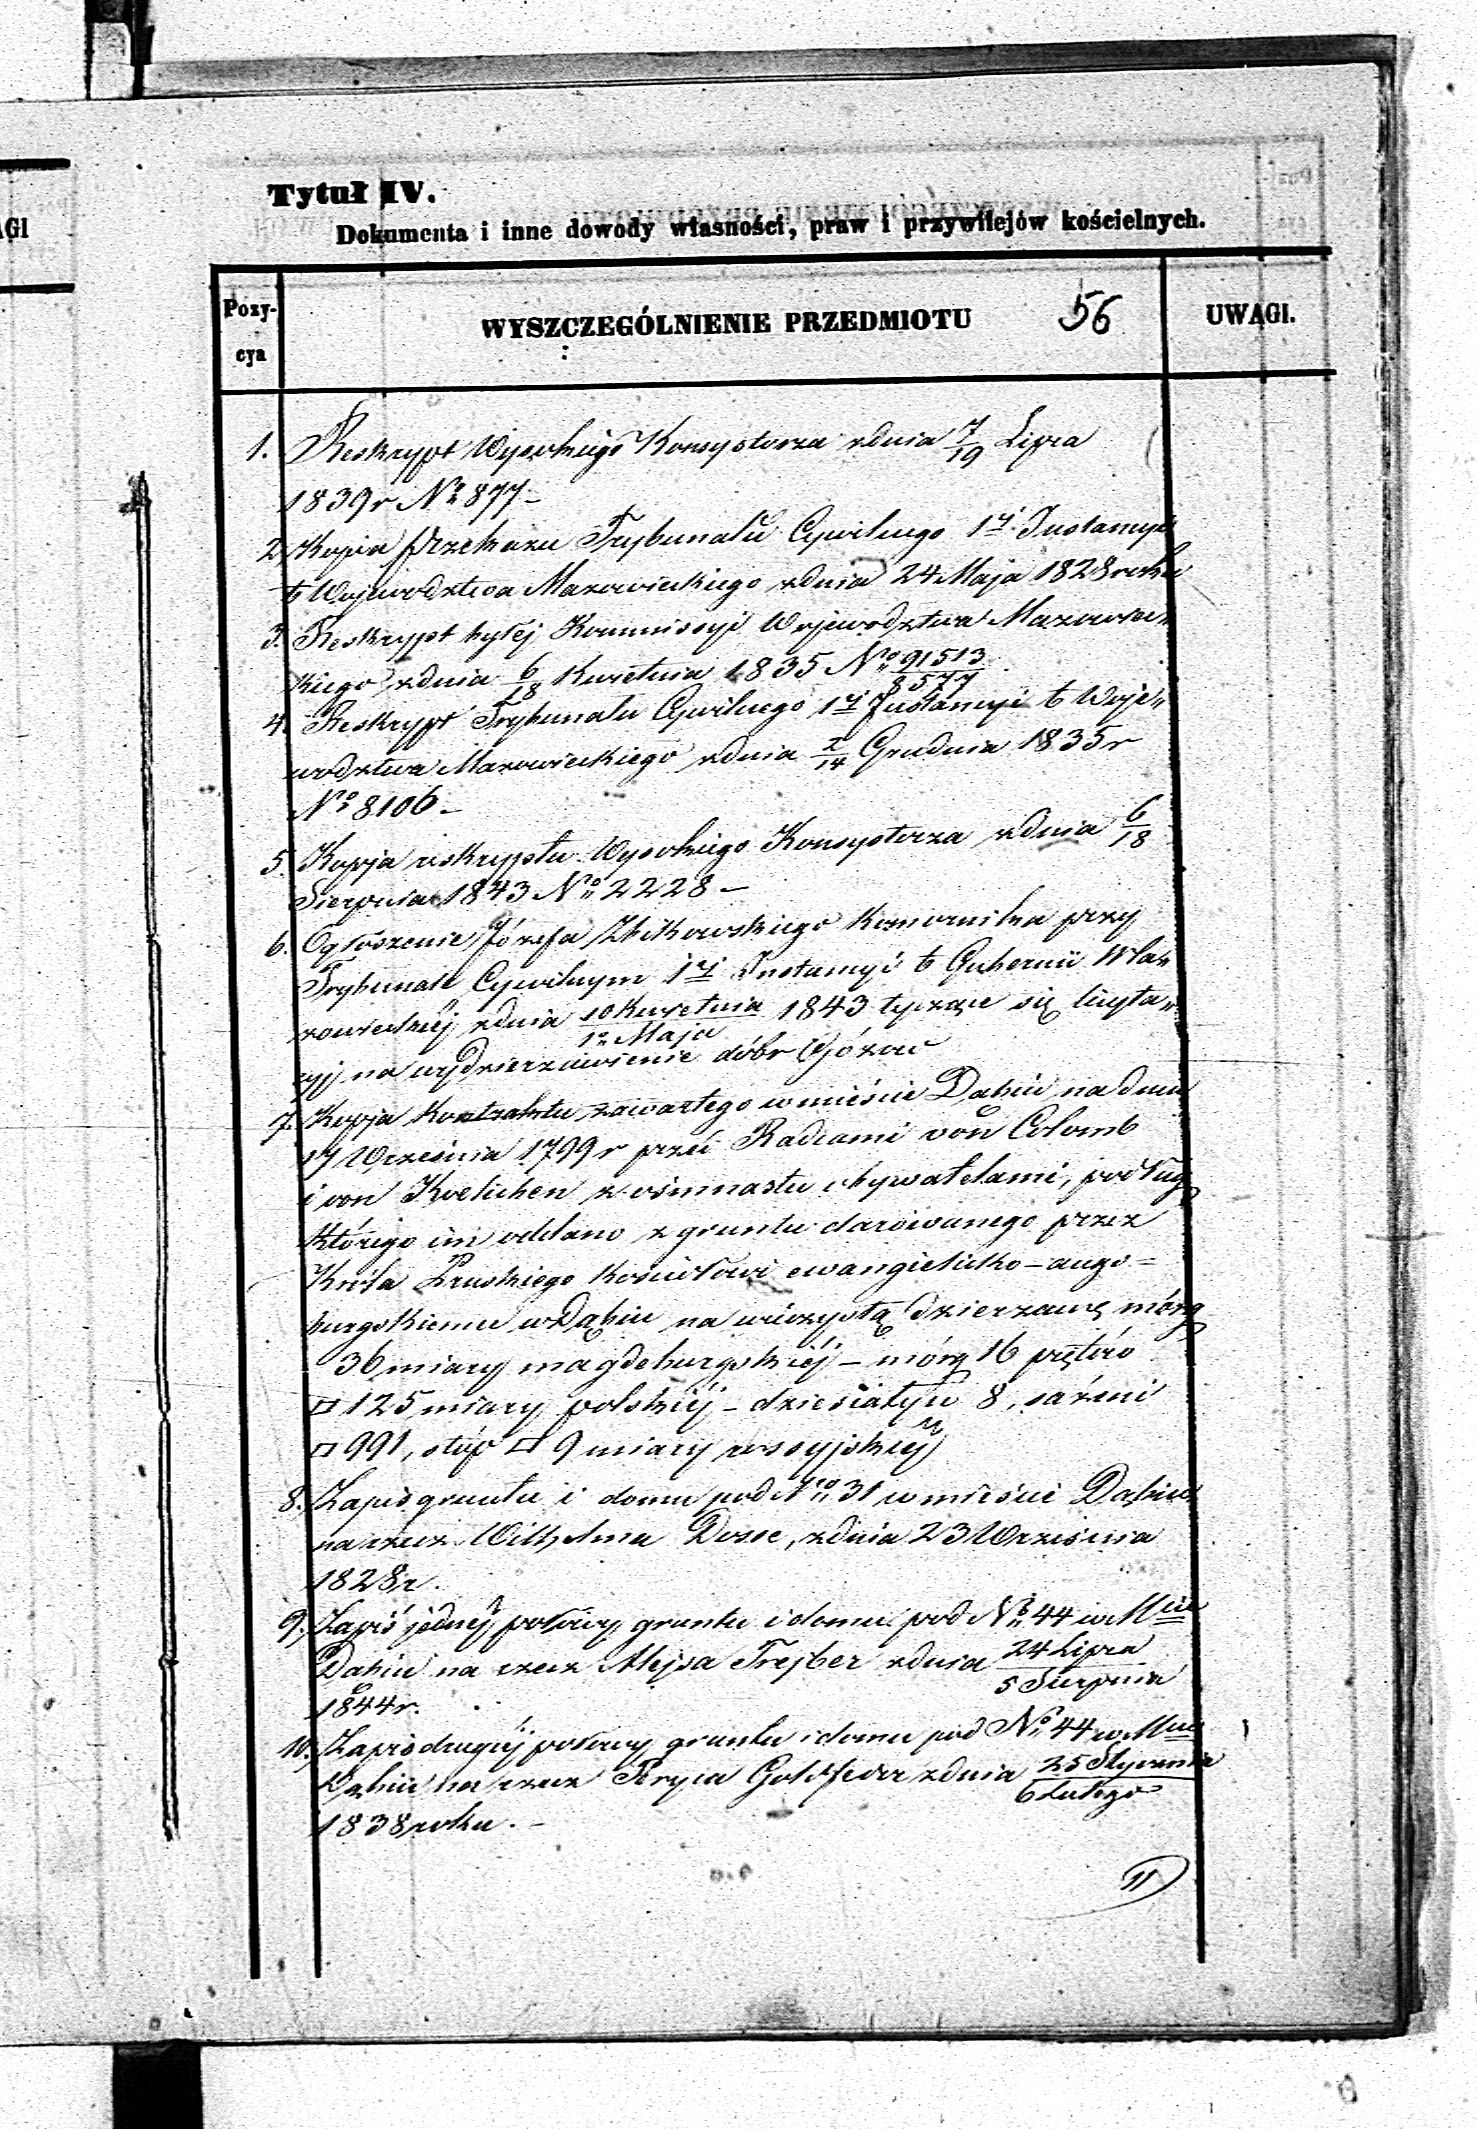 AGI
Tytuł IV.
Dokumenta i inne dowody własności, praw i przywilejów kościelnych.
Pozy-
cya
WYSZCZEGÓLNIENIE PRZEDMIOTU
56
UWAGI.
1. Reskrypt Wysokiego Konsystorza z dnia 7/19 Lipca
1839 r No 877 -
2. Kopia przekazu Trybunału Cywilnego 1ej Instancyi
b Województwa Mazowieckiego z dnia 24 Maja 1828 roku
3. Reskrypt byłej Kommissyi Województwa Mazowiec„
kiego z dnia 6/18 Kwietnia 1835 No 91513/8577
4. Reskrypt Trybunału Cywilnego 1ej Instancyi b Woje„
wództwa Mazowieckiego z dnia 2/14 Grudnia 1835 r
No 8106 -
5. Kopja reskryptu Wysokiego Konsystorza z dnia 6/18
Sierpnia 1843 No 2228 -
6. Ogłoszenie Józefa Żbikowskiego Komornika przy
Trybunale Cywilnym 1ej Instancyi b Gubernii Ma„
zowieckiej z dnia 10 Kwietnia/1o Maja 1843 tyczące się licyta„
cyj na wydzierzawienie dóbr
7. Kopja Kontraktu zawartego w mieście Dąbiu na dniu
17 Września 1799 r przez Radcami von Colomb
i von Koelichen z ośmnastu obywatelami, podług
którego im oddano z gruntu darowanego przez
Króla Pruskiego kościołowi ewangielicko - augs=
burgskiemu w Dąbiu na wieczystą dzierzawę mórg
36 miary magdeburgskiéj - mórg 16 prętów
□ 125 miary polskiéj - dziesiatyn 8, sążeni
□ 991, stóp □ 9 miary rossyjskiéj
8. Zapis gruntu i domu pod No 31 w mieście Dąbiu
na rzecz Wilhelma Dosse, z dnia 23 Września
1828 r.
9. Zapis jednéj połowy gruntu i domu pod No 44 w Mieś
Dąbiu na rzecz Trejber z dnia 24 Lipca/5 Sierpnia
1844 r.
10. Zapis drugiéj połowy gruntu i domu pod No 44 w Mieś
Dąbiu na rzecz Fryca z dnia 25 Stycznia/6 Lutego
1838 roku. -
11